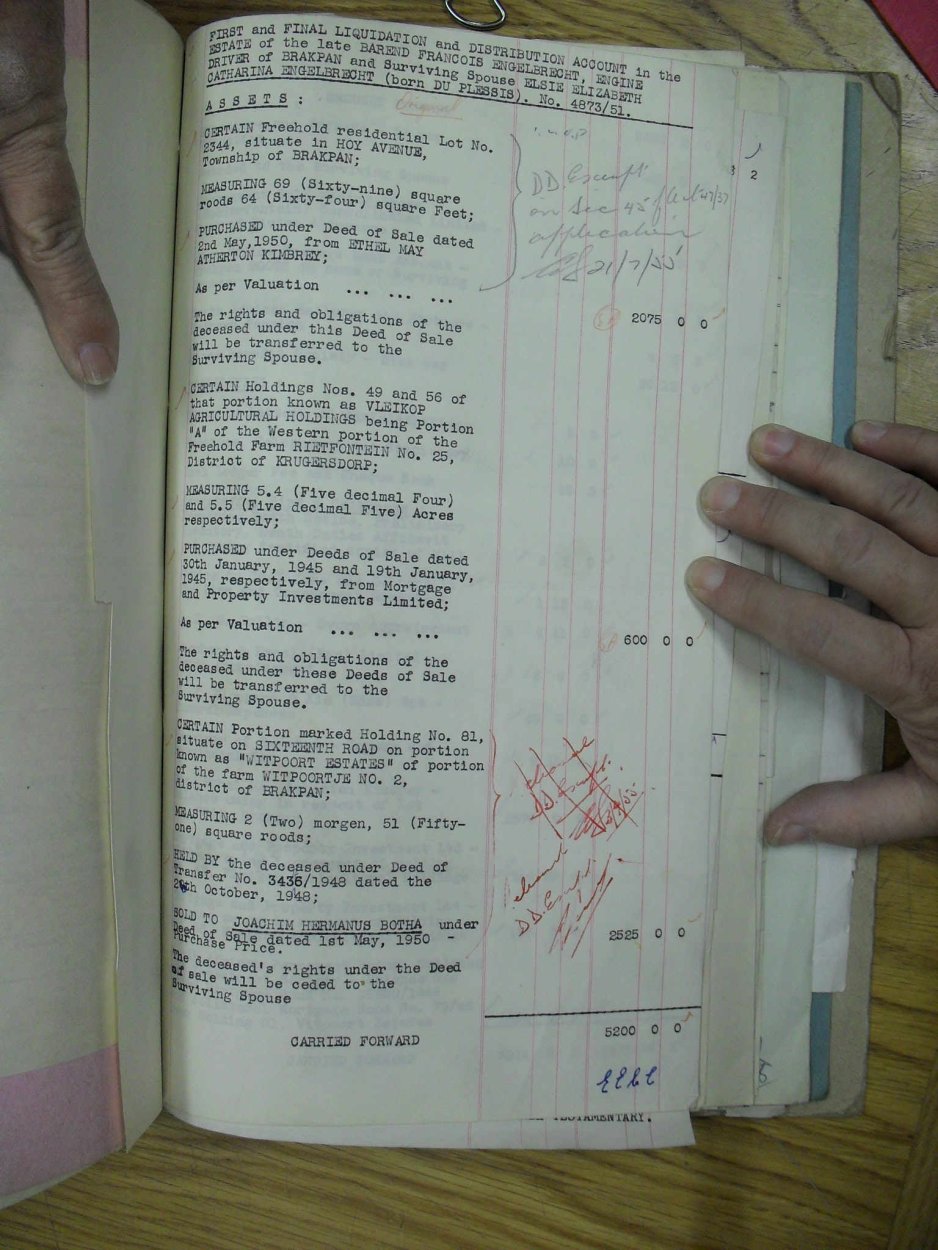 FIRST and FINAL LIQUIDATION and DISTRIBUTION ACCOUNT in the
ESTATE of the late BAREND FRANCOIS ENGELBRECHT, ENGINE
DRIVER of BRAKPAN and Surviving Spouse ELSIE ELIZABETH
CATHARINA ENGELBRECHT (born DU PLESSIS). No. 4873/51.
Original
ASSETS:
CERTAIN Freehold residential Lot No.
2344, situate in HOY AVENUE,
Township of BRAKPAN;
MEASURING 69 (Sixty-nine) square
roods 64 (Sixty-four) square Feet;
PURCHASED under Deed of Sale dated
2nd May, 1950, from ETHEL MAY
ATHERTON KIMBREY;
As per Valuation ... ... ...
DD. Exempt
on Sec 45 of Act 47/37
application
21/7/55
2
2075 0 0
The rights and obligations of the
deceased under this Deed of Sale
will be transferred to the
Surviving Spouse.
CERTAIN Holdings Nos. 49 and 56 of
that portion known as VLEIKOP
AGRICULTURAL HOLDINGS being Portion
"A" of the Western portion of the
Freehold Farm RIETFONTEIN No. 25,
District of KRUGERSDORP;
MEASURING 5.4 (Five decimal Four)
and 5.5 (Five decimal Five) Acres
respectively;
PURCHASED under Deeds of Sale dated
30th January, 1945 and 19th January,
1945, respectively, from Mortgage
and Property Investments Limited;
As per Valuation ... ... ...
600 0 0
The rights and obligations of the
deceased under these Deeds of Sale
will be transferred to the
Surviving Spouse.
CERTAIN Portion marked Holding No. 81,
situate on SIXTEENTH ROAD on portion
known as "WITPOORT ESTATES" of portion
of the farm WITPOORTJE NO. 2,
district of BRAKPAN;
MEASURING 2 (Two) morgen, 51 (Fifty-
one) square roods;
HELD BY the deceased under Deed of
Transfer No. 3436/1948 dated the
October, 1948;
SOLD TO JOACHIM HERMANUS BOTHA under
Deed of Sale dated 1st May, 1950 -
Purchase Price.
2525 0 0
The deceased's rights under the Deed
of sale will be ceded to the
Surviving Spouse
5200 0 0
CARRIED FORWARD
TESTAMENTARY.